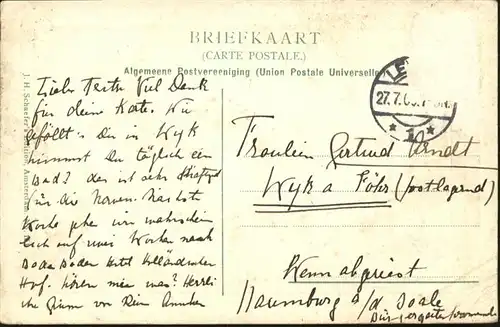 BRIEFKAART
(CARTE POSTALE.)
Algemeene Postvereeniging (Union Postale Universelle)
J. H. Schaefer's Amsterdam
27.7.
Viel Dank
für deine Karte. Wie
gefällt's Dir in Wyk
nimmst Du täglich ein
Bad? das ist sehr
für die Nerven. Nächste
Woche gehen wir wahrschein
lich auf zwei Wochen nach
Baden Baden Hotel Holländischer
Hof. hören wir was? Herrli
che Grüsse von
Fräulein Gertrud Arndt
Wyk a Föhr (postlagernd)
Wenn abgereist
Naumburg a/d Saale
Bürgergarten